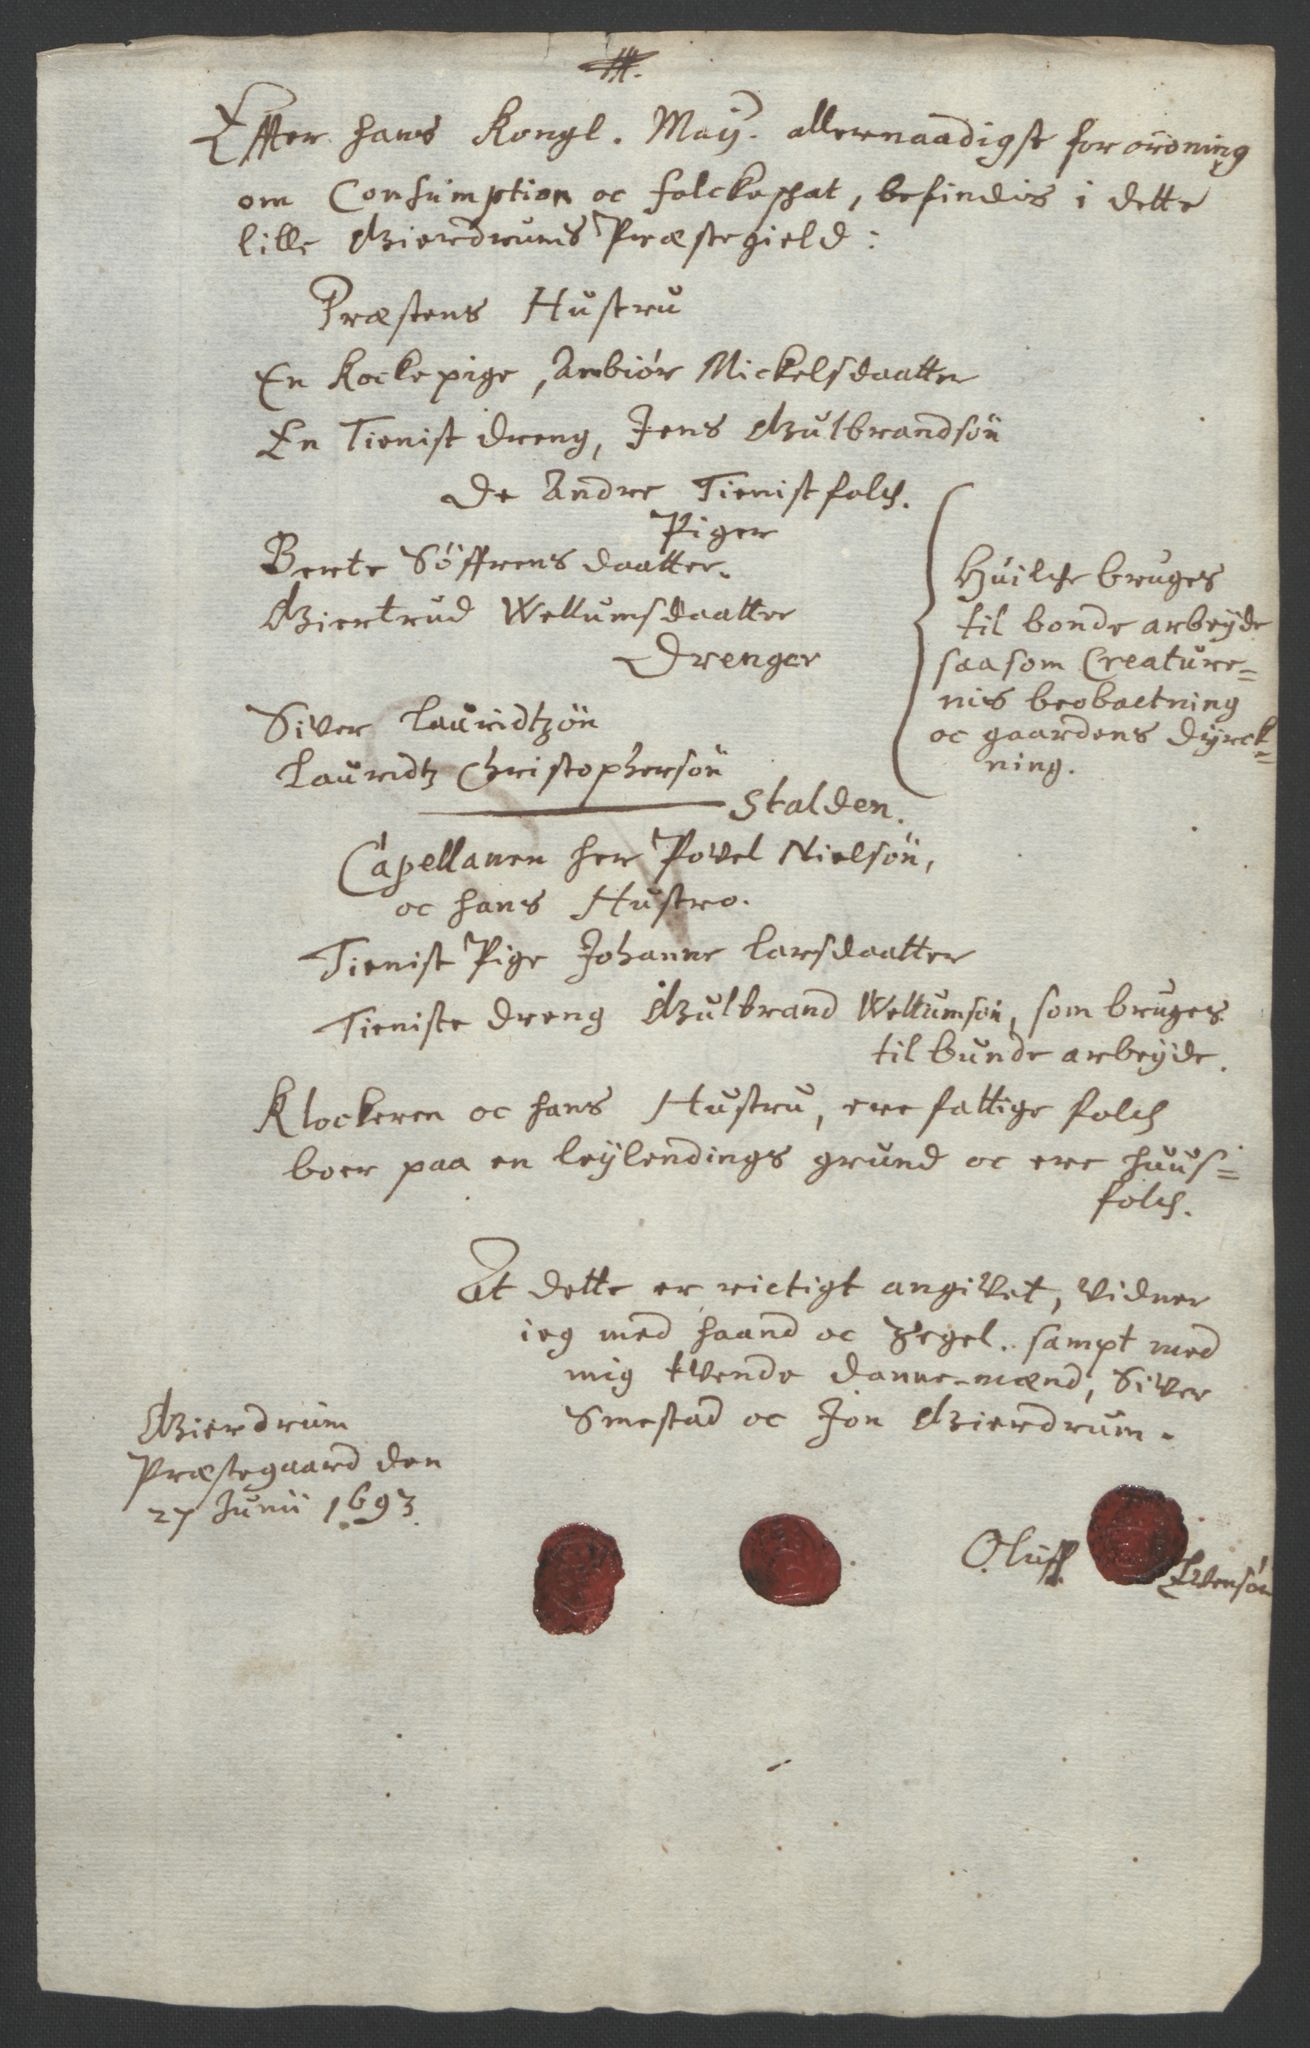 Effter hans Kongl. May. allernaadigste forordning
om Consumption oc folckeschat, befindis i dette
lille Gierdrums Præstegield:
Præstens Hustru
En Kockepige, Anbiør Mickelsdaatter
En Tienist dreng, Jens Gulbrandsøn
De Andre Tienistfolch.
Piger
Berte Søffrensdaatter.
Giertrud Wellumsdaatter
Drenger
Siver Lauridtzøn
Lauridtz Christophersøn
Huilche bruges
til bonde arbeyde
saasom Creature=
nis beobactning
oc gaardens dyrck=
ning.
Stalden.
Capellanen her Povel Nielsøn,
oc hans Hustro.
Tienist Pige Johanne Larsdaatter
Tieniste dreng Gulbrand Wellumsøn, som bruges
til bunde arbeyde.
Klockeren oc hans Hustru, ere fattige folch
boer paa en leylendings grund oc ere huus=
folch.
At dette er rictigt angivet, vidner
ieg med haand oc Zegel. sampt med
mig tvende danne-mænd, Siver
Smestad oc Jon Gierdrum.
Gierdrum
Præstegaard den
27 Junii 1693.
Oluff Ivensøn